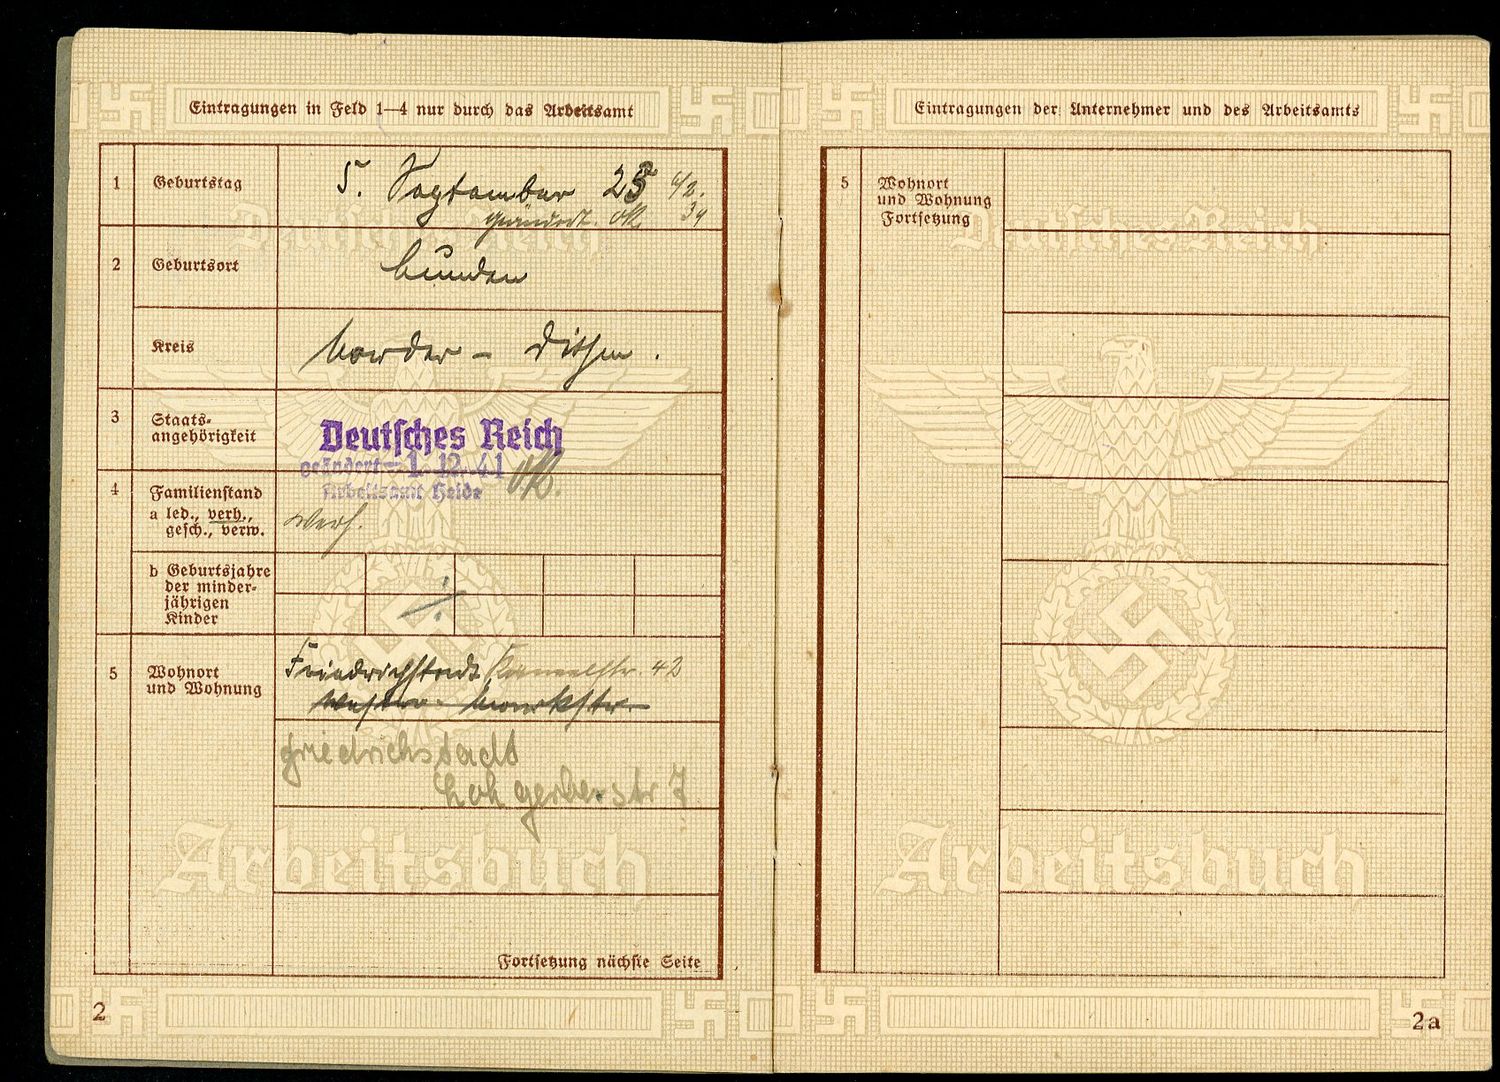 Eintragungen in Feld 1—4 nur durch das Arbeitsamt
1 Geburtstag 5. September 23
geändert.
2 Geburtsort Lunden
Kreis Norder - Dithm.
3 Staats-
angehörigkeit
Deutsches Reich
geändert 1. 12. 41
Arbeitsamt Heide
4 Familienstand
a led., verh.,
gesch., verw.
verh.
b Geburtsjahre
der minder-
jährigen
Kinder
5 Wohnort
und Wohnung
Friedrichstadt 42
Wester- Marktstr.
Friedrichstadt
Loh gerberstr 7
Fortsetzung nächste Seite
2
Deutsches Reich
Arbeitsbuch
Eintragungen der Unternehmer und des Arbeitsamts
5 Wohnort
und Wohnung
Fortsetzung
Deutsches Reich
Arbeitsbuch
2a